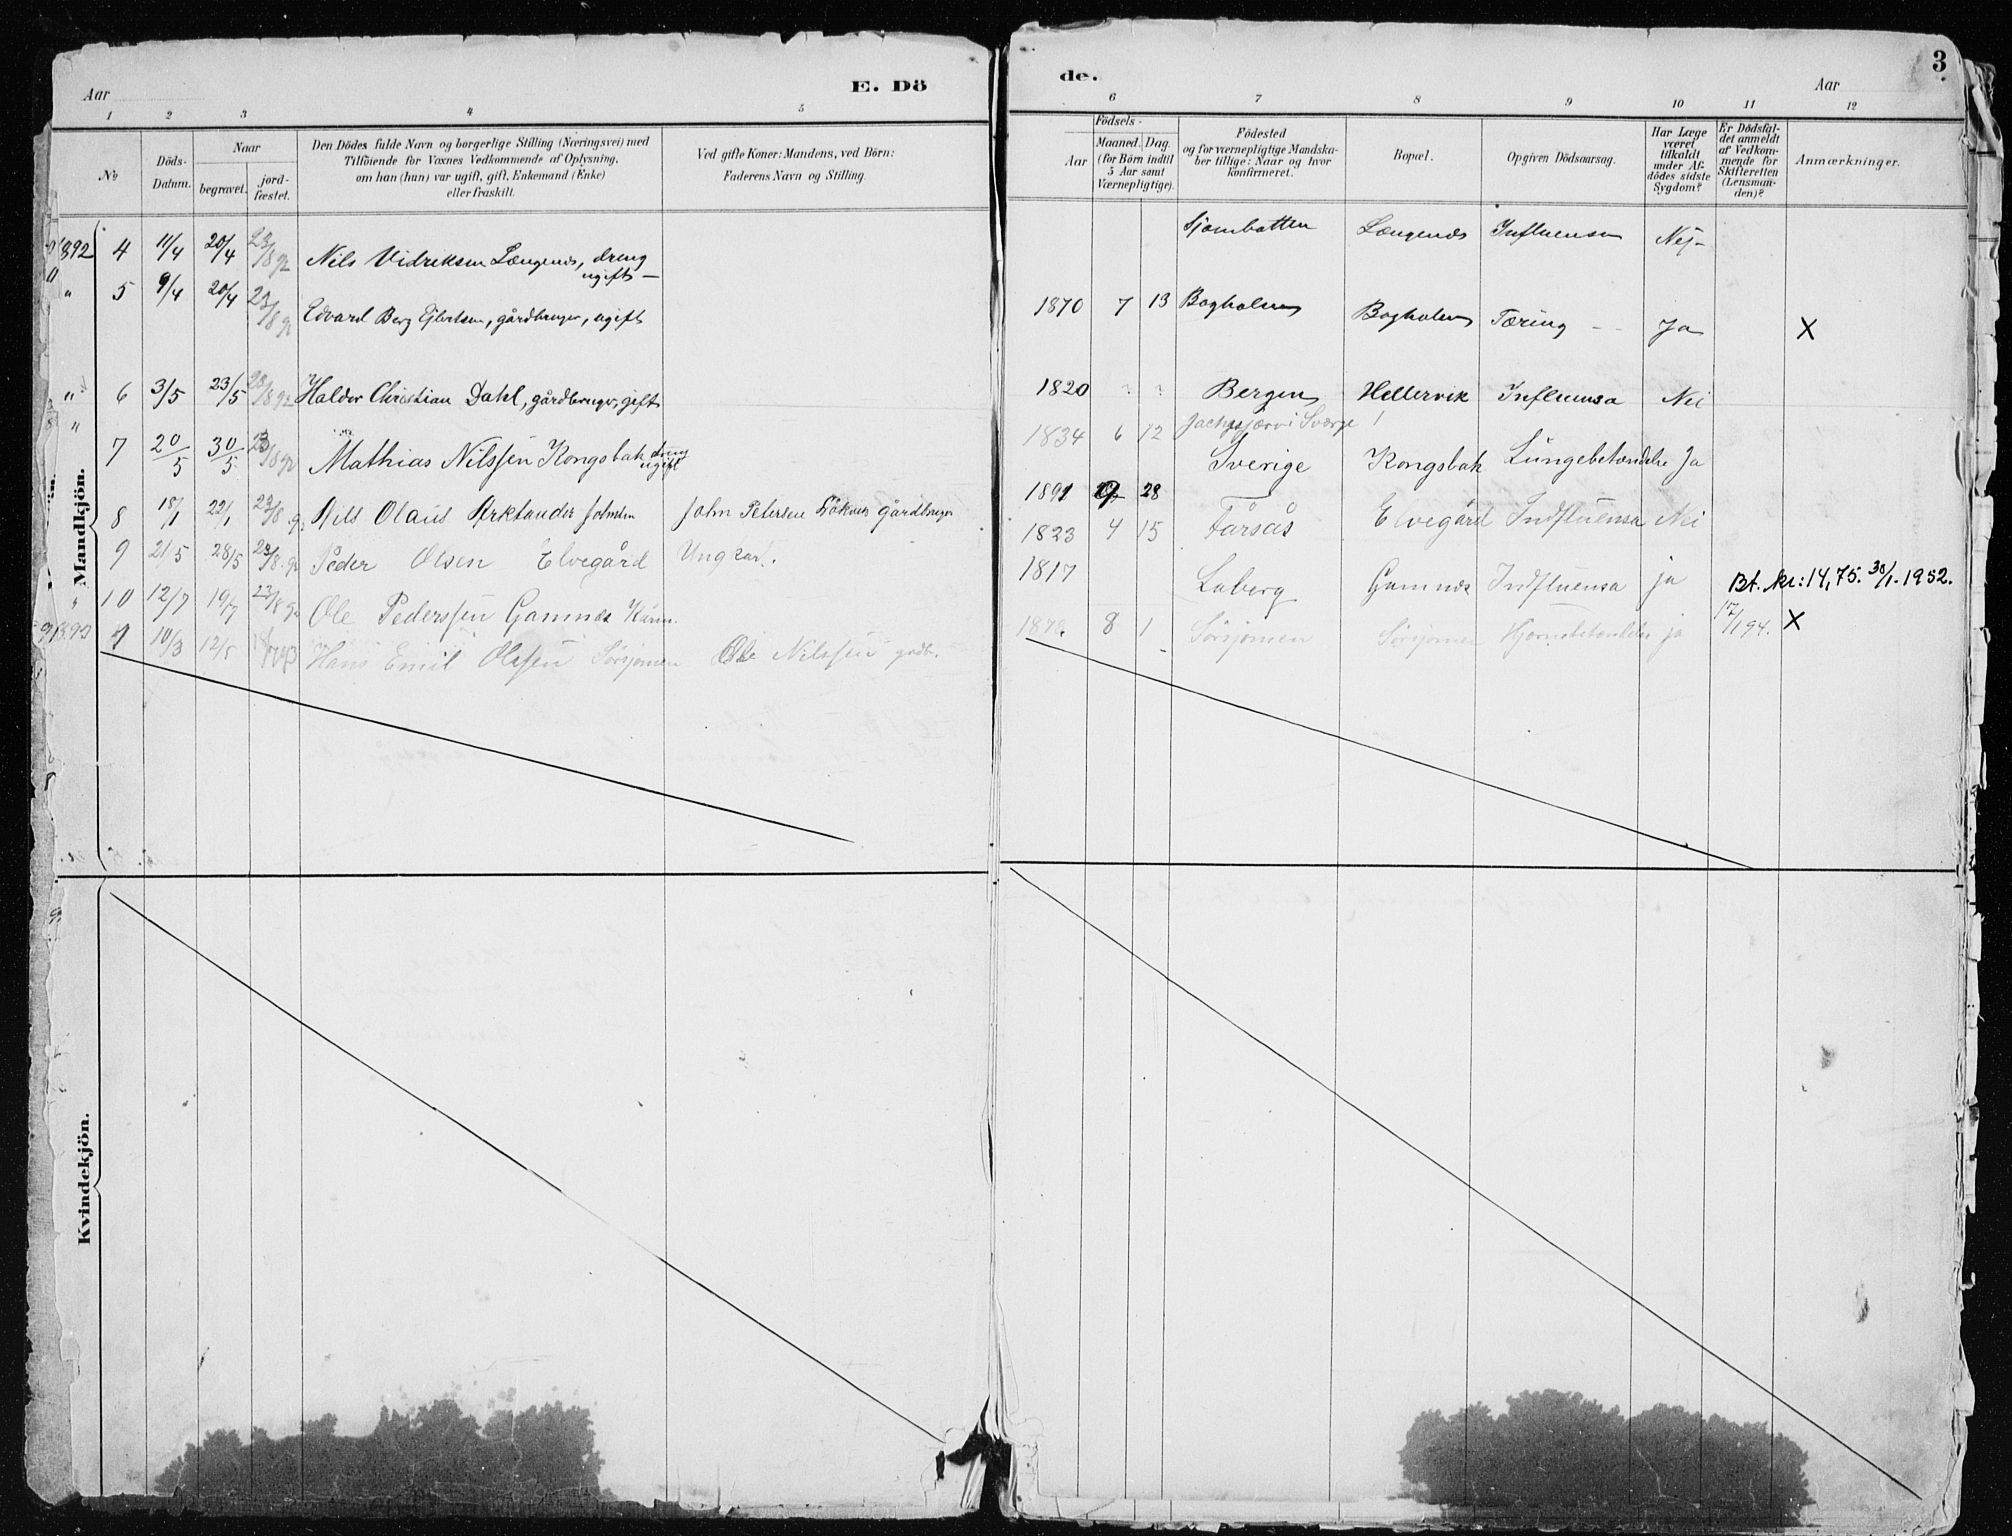 Aar
E. Dö
de.
Aar
3
1 2 3 4 5 6 7 8 9 10 11 12
No
Döds-
Datum.
Naar
begravet.
jord-
fæstet.
Den Dödes fulde Navn og borgerlige Stilling (Næringsvei) med
Tilföiende for Voxnes Vedkommende af Oplysning,
om han (hun) var ugift, gift, Enkemand (Enke)
eller fraskilt.
Ved gifte Koner: Mandens, ved Börn:
Faderens Navn og Stilling.
Födsels-
Aar
Maaned. Dag.
(for Börn indtil
5 Aar samt
Værnepligtige).
Födested
og for værnepligtige Mandska-
ber tillige: Naar og hvor
konfirmeret.
Bopæl.
Opgiven Dödsaarsag.
Har Læge
været
tilkaldt
under Af-
dödes sidste
Sygdom?
Er Dödsfal-
det anmeldt
af Vedkom-
mende for
Skifteretten
(Lensman-
den)?
Anmærkninger.
Mandkjön.
1892 4 11/4 20/4 23/8 92 Nils Vidriksen Længenes, dreng ugift — Sjombotten Længenes Influensa Nej-
" 5 9/4 20/4 23/8 92 Edvard Berg Ejlertsen, gårdbruger, ugift 1870 7 13 Bogholm Bogholm Tæring — Ja X
" 6 3/5 23/5 23/8 92 Haldor Christian Dahl, gårdbruger, gift 1820 ? ? Bergen Hellervik Influensa Nei
" 7 20/5 30/5 23/8 92 Mathias Nilssen Kongsbak dreng ugift 1834 6 12 Sverige Kongsbak Lungebetændelse Ja
8 18/1 22/1 23/8 92 Nils Olaus Arktander Johnsen John Petersen gårdbruger 1891 9 28 Fårsås Elvegård Indfluensa Nei
9 21/5 28/5 23/8 92 Peder Olsen Elvegård Ungkarl. 1823 4 15
" 10 12/7 19/7 23/8 92 Ole Pederssen Gamnæs 1817 Laberg Gamnæs Indfluensa ja Bt. kr: 14,75. 30/1-1952.
1893 1 10/3 12/5 Hans Emil Olssen Sørsjomen Ole Nilssen grdb. 1872 8 1 Sørsjomen Sørsjomen Hjernebetændelse ja 17/1 94. X
Kvindekjön.